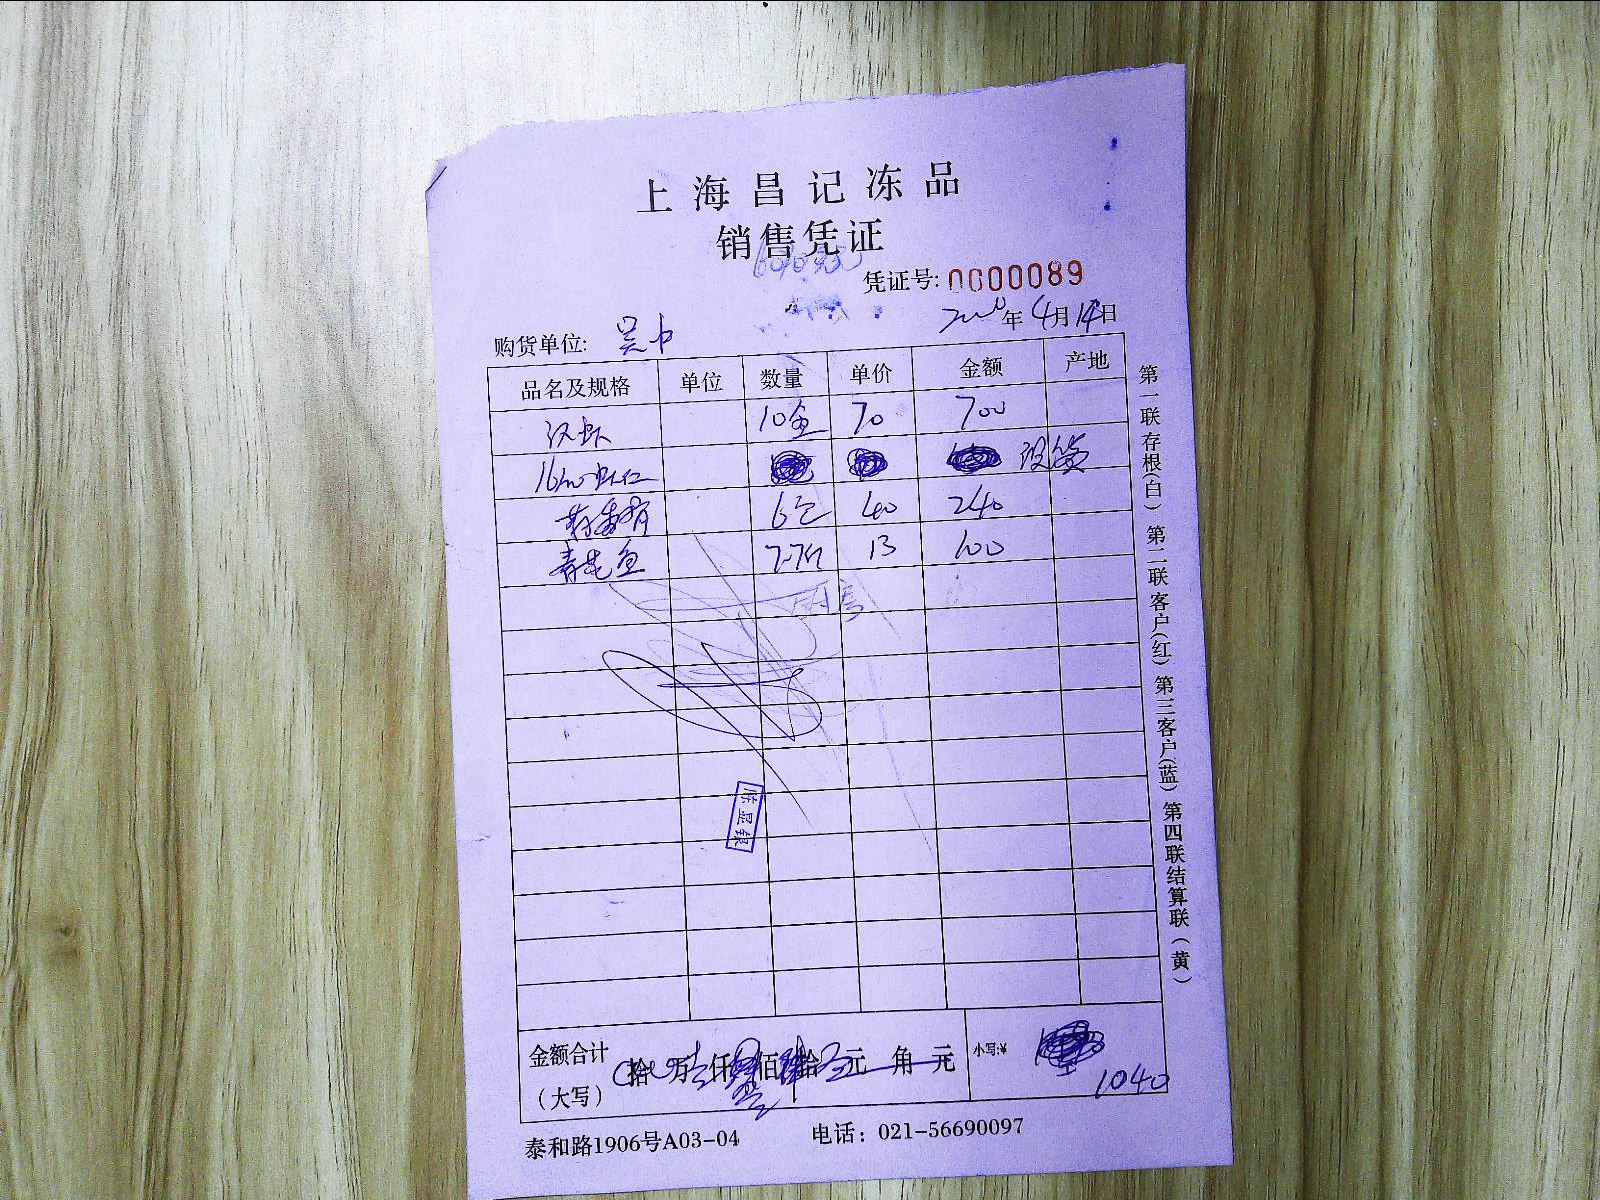 上海昌记冻品
销售凭证
凭证号: 0000089
年4月14日
购货单位: 吴中
品名及规格 单位 数量 单价 金额 产地
汉虾 10盒 70 700
虾仁 没货
6包 40 240
青花鱼 7.7斤 13 100
陈显银
金额合计
(大写) 拾 万 仟 佰 拾 元 角 元 小写:¥ 1040
泰和路1906号A03-04 电话:021-56690097
第一联存根(白) 第二联客户(红) 第三客户(蓝) 第四联结算联(黄)